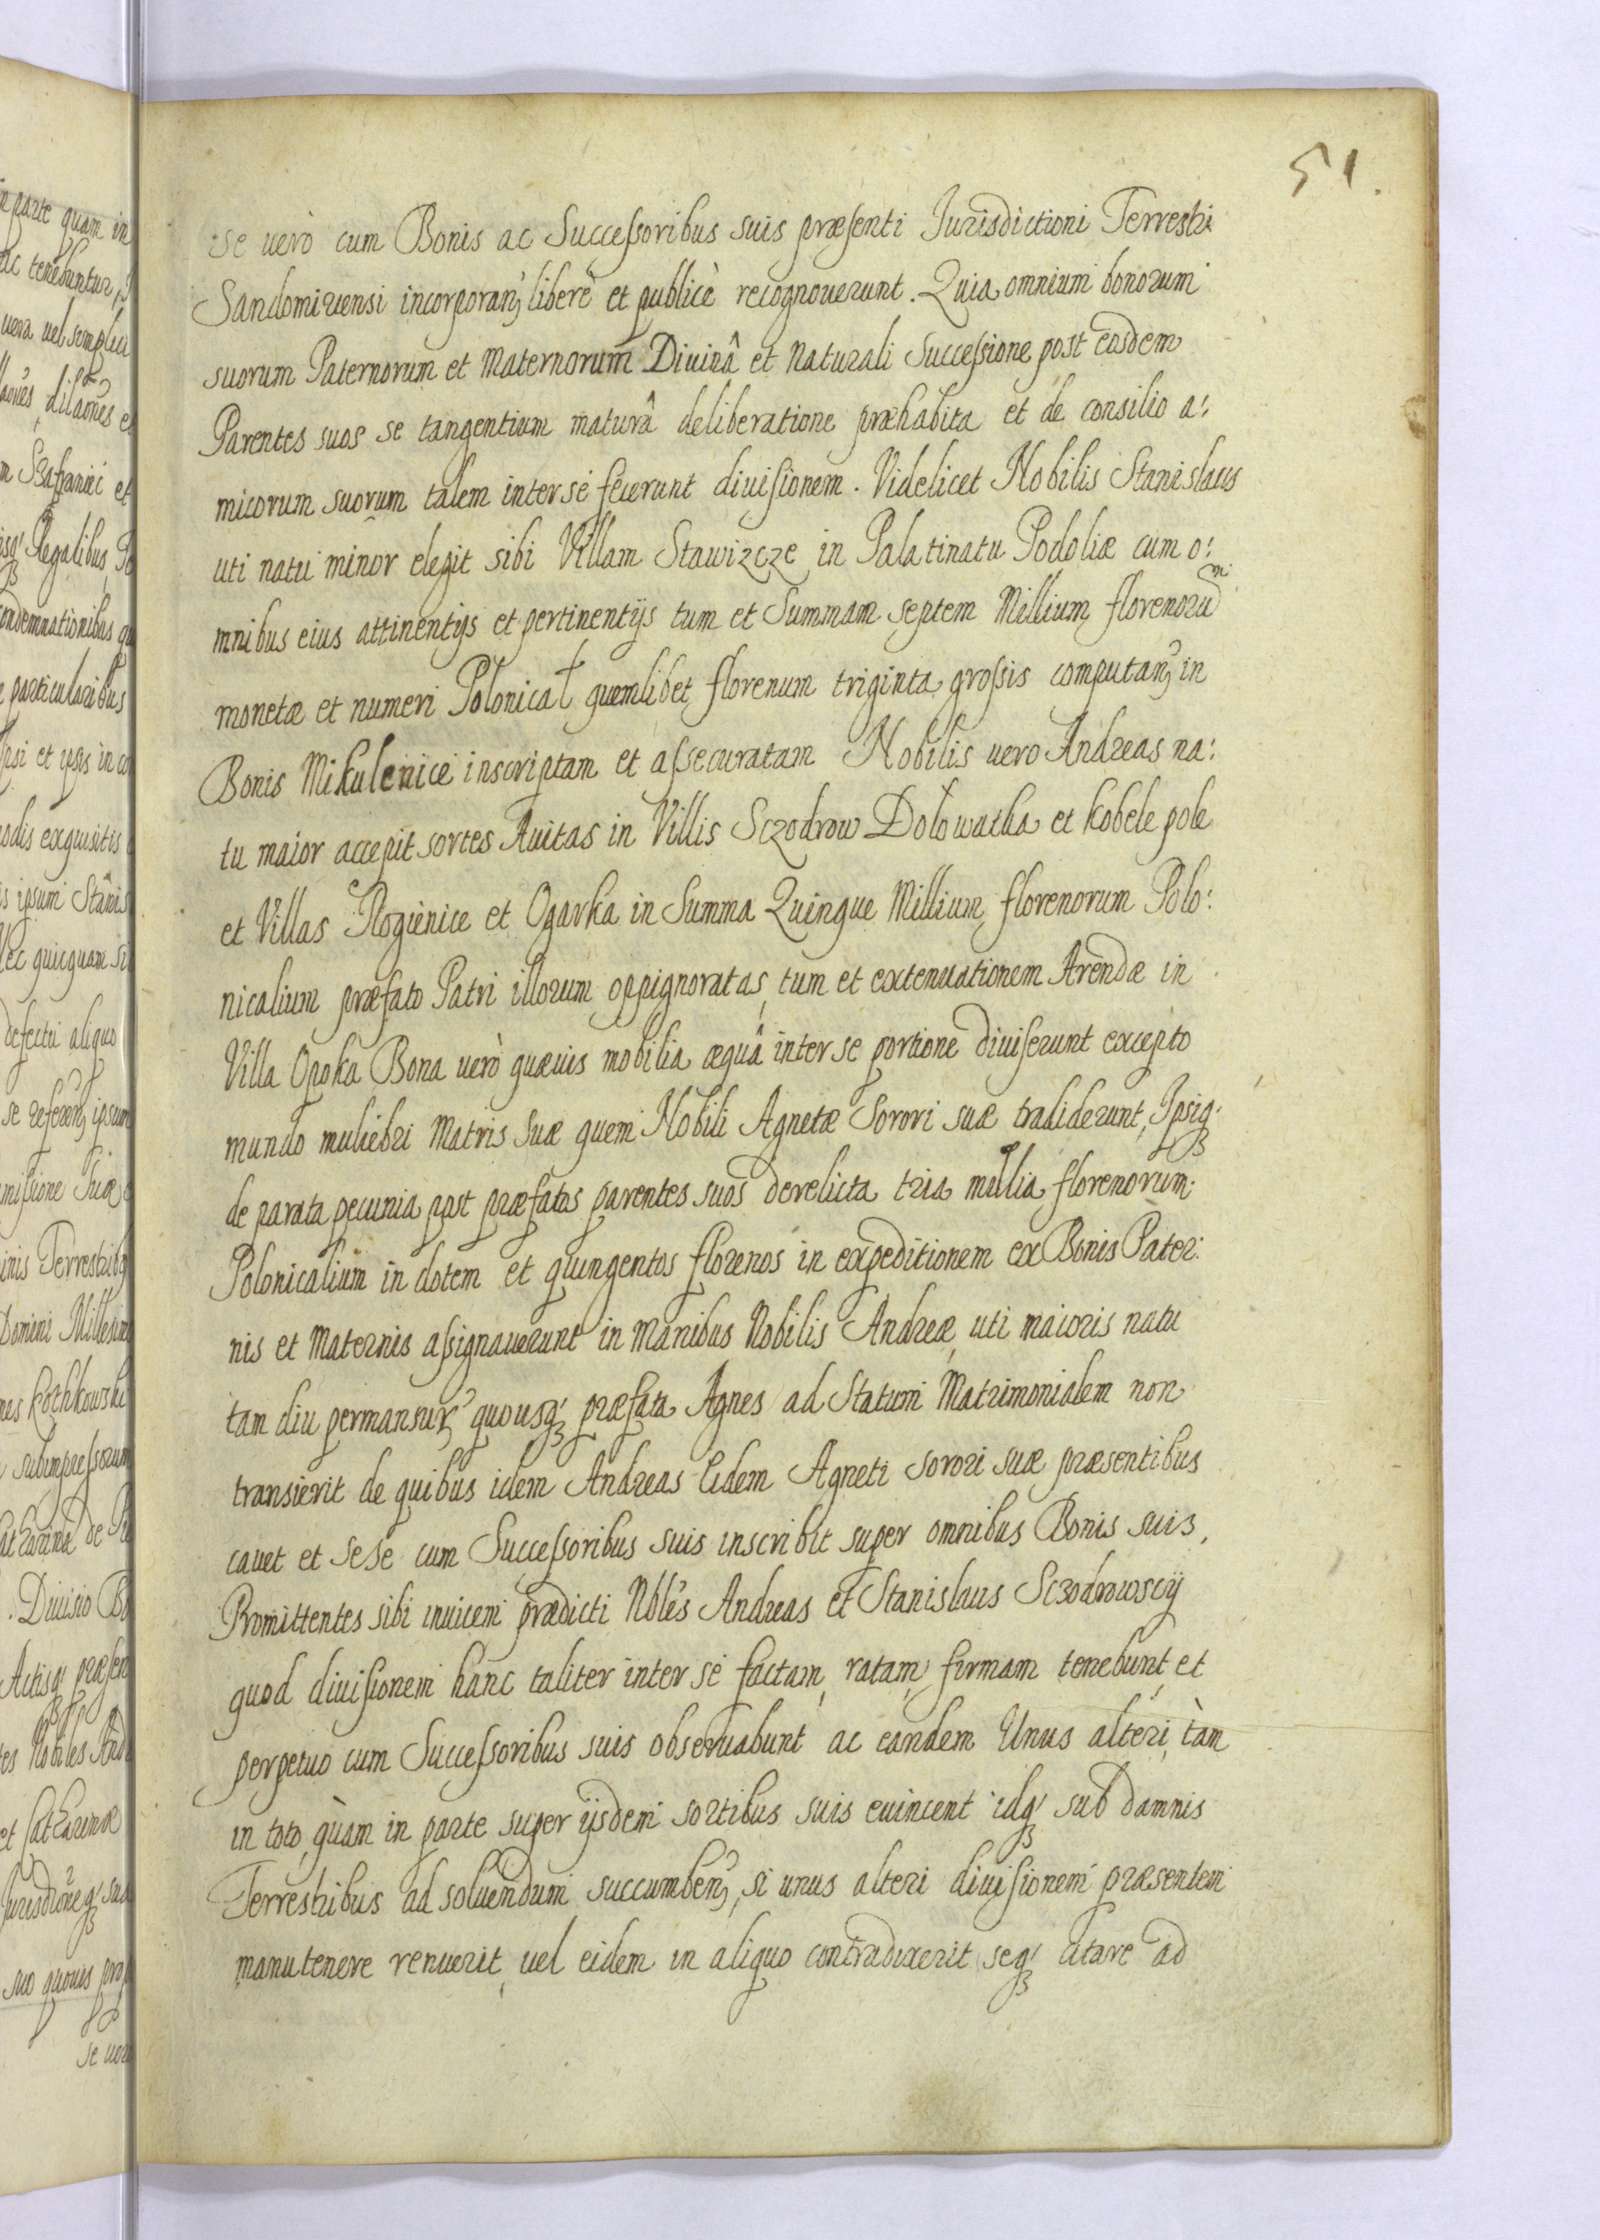 51.
se uerò cum Bonis ac Successoribus suis præsenti Jurisdictioni Terrestri
Sandomiruensi incorporanʒ liberè et publicè recognouerunt. Quia omnium bonorum
suorum Paternorum et Maternorum Diuinâ et Naturali Successione post eosdem
Parentes suos se tangentium maturâ deliberatione præhabita et de consilio a:
micorum suorum talem inter se fecerunt diuisionem. Videlicet Nobilis Stanislaus
uti natu minor elegit sibi Villam Stawizcze in Palatinatu Podoliæ cum o:
mnibus eius attinentijs et pertinentijs tum et Summam septem Millium florenorũ
monetæ et numeri Polonical quemlibet florenum triginta grossis computanʒ in
Bonis Mikulenice inscriptam et assecuratam Nobilis uero Andreas na:
tu maior accepit sortes Auitas in Villis Sczodrow Dolowatka et Kobele pole
et Villas Rogienice et Ogarka in Summa Quinque Millium florenorum Polo:
nicalium præfato Patri illorum oppignoratas, tum et extenuationem Arendæ in
Villa Opoka Bona uerò quæuis mobilia æquâ inter se portione diuiserunt excepto
mundo muliebri Matris suæ quem Nobili Agnetæ Sorori suæ tradiderunt, Ipsiqʒ
de parata pecunia post præfatos parentes suos derelicta tria millia florenorum
Polonicalium in dotem et quingentos florenos in expeditionem ex Bonis Pater:
nis et Maternis assignauerunt in manibus Nobilis Andreæ, uti maioris natu
tam diu permansurʒ quousqʒ præfata Agnes ad Statum Matrimonialem non
transierit de quibus idem Andreas Eidem Agneti sorori suæ præsentibus
cauet et sese cum Successoribus suis inscribit super omnibus Bonis suis,
Promittentes sibi inuicem prædicti Nbles Andreas et Stanislaus Sczodrowscij
quod diuisionem hanc taliter inter se factam, ratam, firmam tenebunt, et
perpetuo cum Successoribus suis obseruabunt ac eandem Unus alteri, tàm
in toto, quàm in parte super ijsdem sortibus suis euincent idqʒ sub damnis
Terrestribus ad soluendum succumbenʒ, si unus alteri diuisionem præsentem
manutenere renuerit, uel eidem in aliquo contradixerit seqʒ citare ad